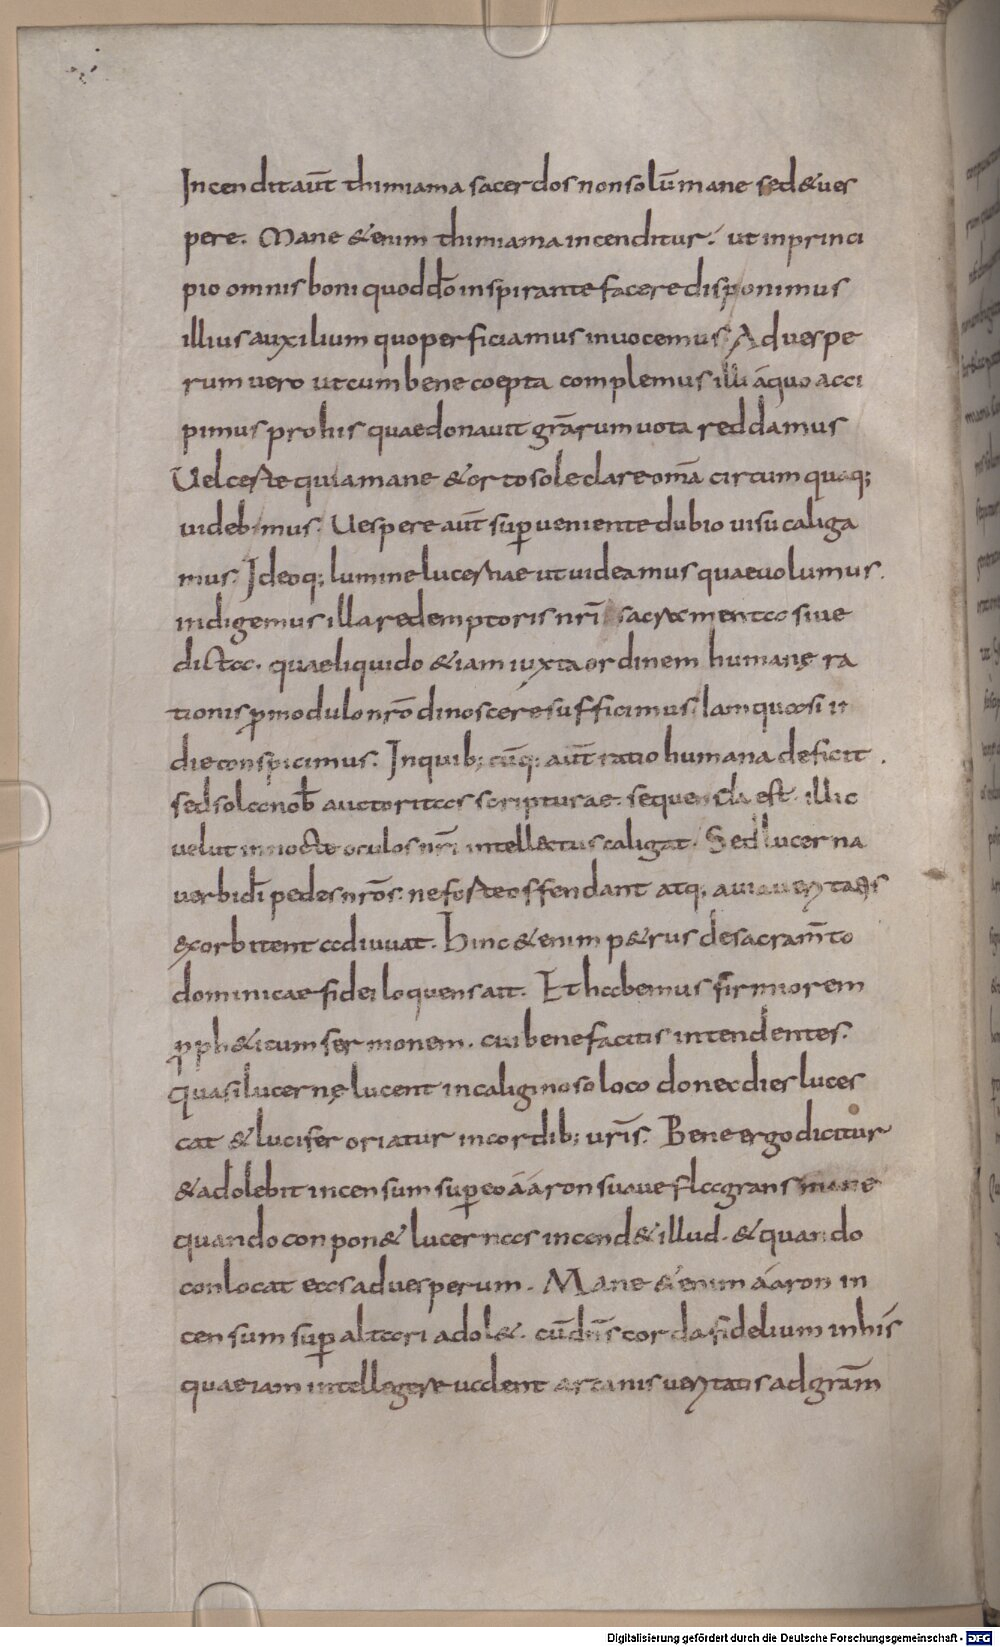 Incendit aut̄ thimiama sacerdos non solū mane sed & ues
pere. Mane & enim thimiama incenditur. ut in princi
pio omnis boni quod dō inspirante facere disponimus
illius auxilium quo perficiamus inuocemus. Ad uespe
rum uero ut cum bene coepta complemus illi á quo acci
pimus pro his quae donauit grārum uota reddamus
Uel certe quia mane & orto sole clare omā circum quaq;
uidebimus. Uespere aut̄ sup̄ueniente dubio uisu caliga
mus. Ideoq; lumine lucernae ut uideamus quae uolumus.
indigemus illa redemptoris nr̄i sacramenta siue
dicta. quae liquido & iam iuxta ordinem humanę ra
tionis p̄ modulo nr̄o dinoscere sufficimus. Iam quasi in
die conspicimus. In quib; cūq; aut̄ ratio humana deficit.
sed sola nob̄ auctoritas scripturae. sequenda est. illic
uelut in nocte oculos nr̄i intellectus caligat. Sed lucerna
uerbi dī pedes nr̄os. ne forte offendant atq; a uia ueritatis
exorbitent adiuuat. Hinc & enim p&rus de sacram̄to
dominicae fidei loquens ait. Et habemus firmiorem
p̄ph&icum sermonem. cui bene facitis intendentes.
quasi lucernę lucent in caliginoso loco donec dies luces
cat & lucifer oriatur in cordib; ur̄is. Bene ergo dicitur
& adolebit incensum sup̄ eo áaron suaue flagrans mane
quando conpon& lucernas incend& illud. & quando
conlocat eas ad uesperum. Mane & enim áaron in
censum sup̄ altari adol&. cū dn̄s corda fidelium in his
quae iam intellegere ualent arcanis ueritatis ad grām
Digitalisierung gefördert durch die Deutsche Forschungsgemeinschaft - DFG